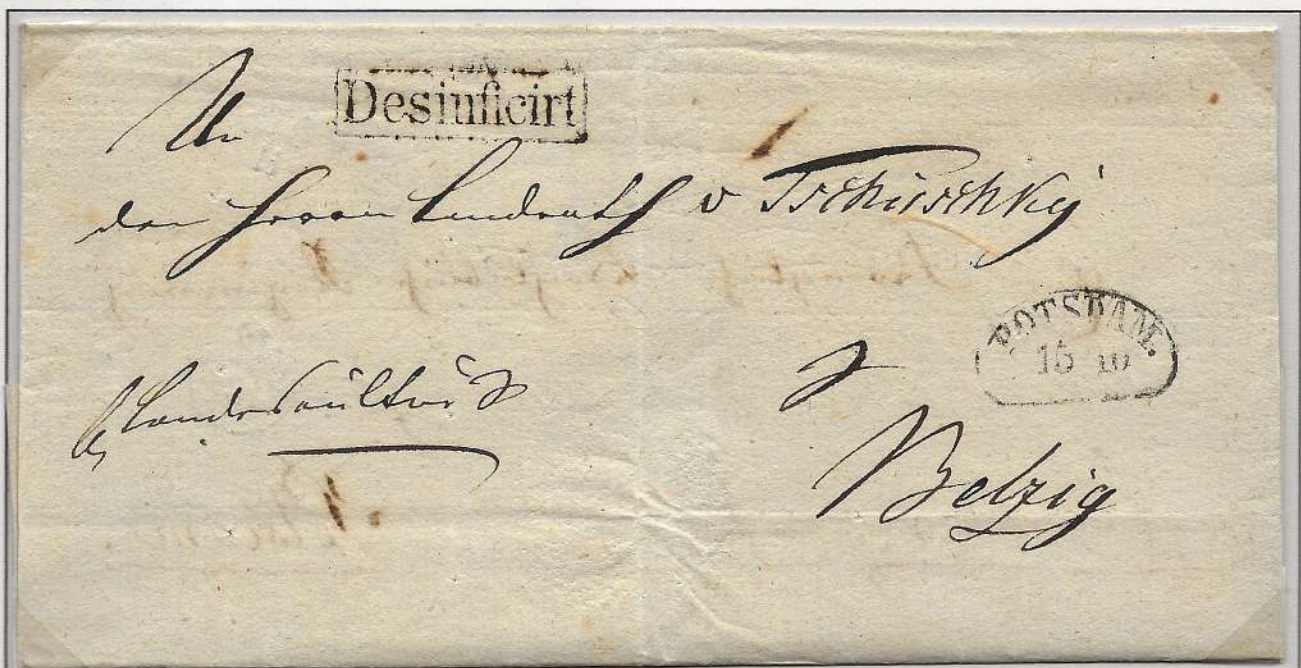 Desinficirt
An
den Herrn Landrath v Tschirschky
POTSDAM.
15 10
Belzig